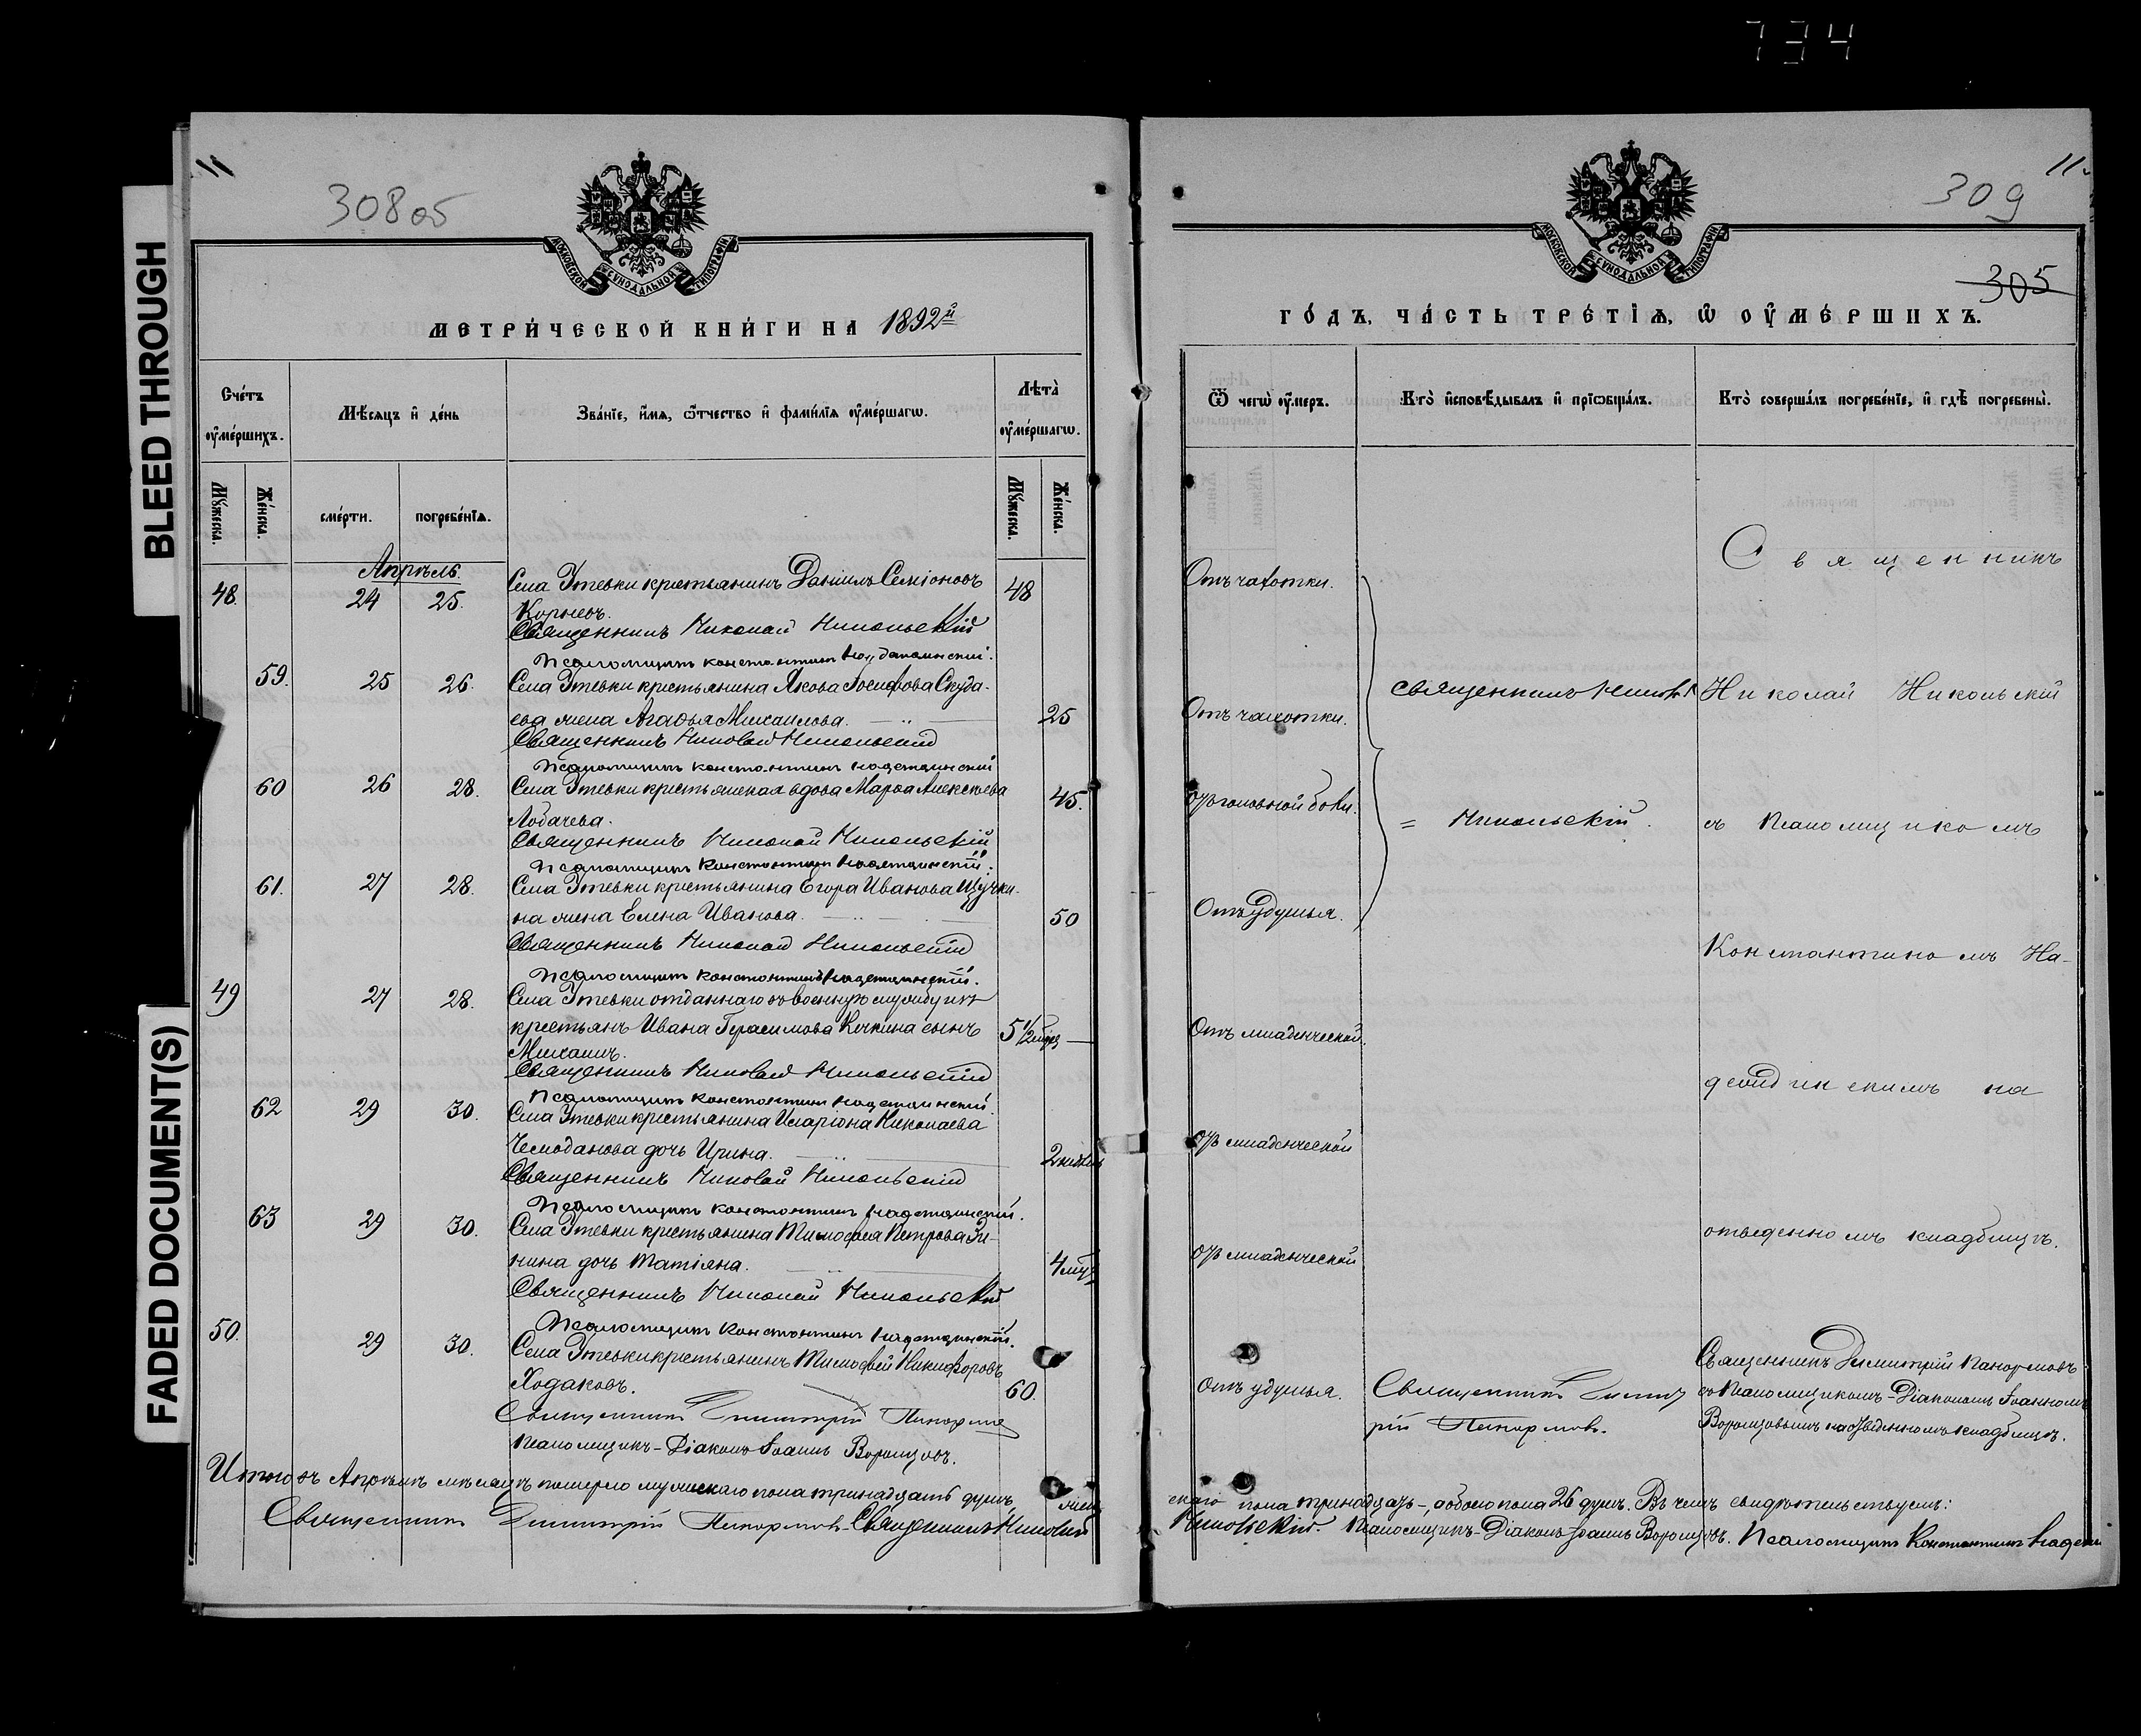 734
BLEED THROUGH
FADED DOCUMENT(S)
11
308 об
МОСКОВСКОЙ СѴНОДАЛЬНОЙ ТИПОГРАФІИ
МЕТРИ́ЧЕСКОЙ КНИ́ГИ НА 1892й
Сче́тъ ᲂу҆ме́ршихъ.
Мѣ́сяцъ и҆ де́нь
Зва́нїе, и҆́мя, ѻ҆́тчество и҆ фами́лїя ᲂу҆ме́ршагѡ.
Лѣта̀ ᲂу҆ме́ршагѡ.
Мꙋ́жеска.
Же́нска.
сме́рти.
погребе́нїѧ.
Мꙋ́жеска.
Же́нска.
Апрѣль.
48. 24 25. Села Утевки крестьянинъ Даніилъ Семіоновъ 48
Корневъ.
Священникъ Николай Никольскій
Псаломщикъ Константинъ Надеждинскій.
59. 25 26. Села Утевки крестьянина Якова Іосифова Скуда-
ева жена Агафья Михаилова. 25
Священникъ Николай Никольскій
Псаломщикъ Константинъ Надеждинскій
60 26 28. Села Утевки крестьянская вдова Марѳа Алексѣева 45.
Лобачева.
Священникъ Николай Никольскій
Псаломщикъ Константинъ Надеждинскій.
61. 27 28. Села Утевки крестьянина Егора Иванова Щучки-
на жена Елена Иванова. 50
Священникъ Николай Никольскій
Псаломщикъ Константинъ Надеждинскій.
49 27 28. Села Утевки отданнаго въ военную службу изъ
крестьянъ Ивана Герасимова Кечкина сынъ 5 1/2 мѣс
Михаилъ.
Священникъ Николай Никольскій
Псаломщикъ Константинъ Надеждинскій.
62 29 30. Села Утевки крестьянина Иларіона Николаева
Чемоданова дочь Ирина. 2 недѣль
Священникъ Николай Никольскій
Псаломщикъ Константинъ Надеждинскій.
63 29 30. Села Утевки крестьянина Тимофея Петрова
нина дочь Татіяна. 4 мѣс
Священникъ Николай Никольскій
Псаломщикъ Константинъ Надеждинскій.
50. 29 30. Села Утевки крестьянинъ Тимофей Никифоровъ
Ходаковъ. 60.
Священникъ Димитрій Панормовъ
Псаломщикъ-Діаконъ Іоаннъ Воронцовъ.
Итого въ Апрѣлѣ мѣсяцѣ померло мужескаго пола тринадцать душъ, жен
Священникъ Димитрій Панормовъ. Священникъ Николай
11
309
305
МОСКОВСКОЙ СѴНОДАЛЬНОЙ ТИПОГРАФІИ
ГО́ДЪ, ЧА́СТЬ ТРЕ́ТЇѦ, Ѡ ОУ҆МЕ́РШИХЪ.
Ѿ чегѡ̀ ᲂу҆́меръ.
Кто̀ и҆сповѣ́дывалъ и҆ прїѻбща́лъ.
Кто̀ соверша́лъ погребе́нїе, и҆ гдѣ̀ погребены̀.
Отъ чахотки.
Отъ чахотки.
Отъ головной боли.
Отъ удушья.
Отъ младенческой.
Отъ младенческой
Отъ младенческой
Священникъ Николай
= Никольскій.
Священникъ
Николай Никольскій
съ Псаломщикомъ
Константиномъ На-
деждинскимъ на
отведенномъ кладбищѣ.
Отъ удушья.
Священникъ Димит
рій Панормовъ.
Священникъ Димитрій Панормовъ
съ Псаломщикомъ-Діакономъ Іоанномъ
Воронцовымъ на отведенномъ кладбищѣ.
скаго пола тринадцать, а обоего пола 26 душъ. Въ чемъ свидѣтельствуемъ:
Никольскій. Псаломщикъ-Діаконъ Іоаннъ Воронцовъ. Псаломщикъ Константинъ Надежди